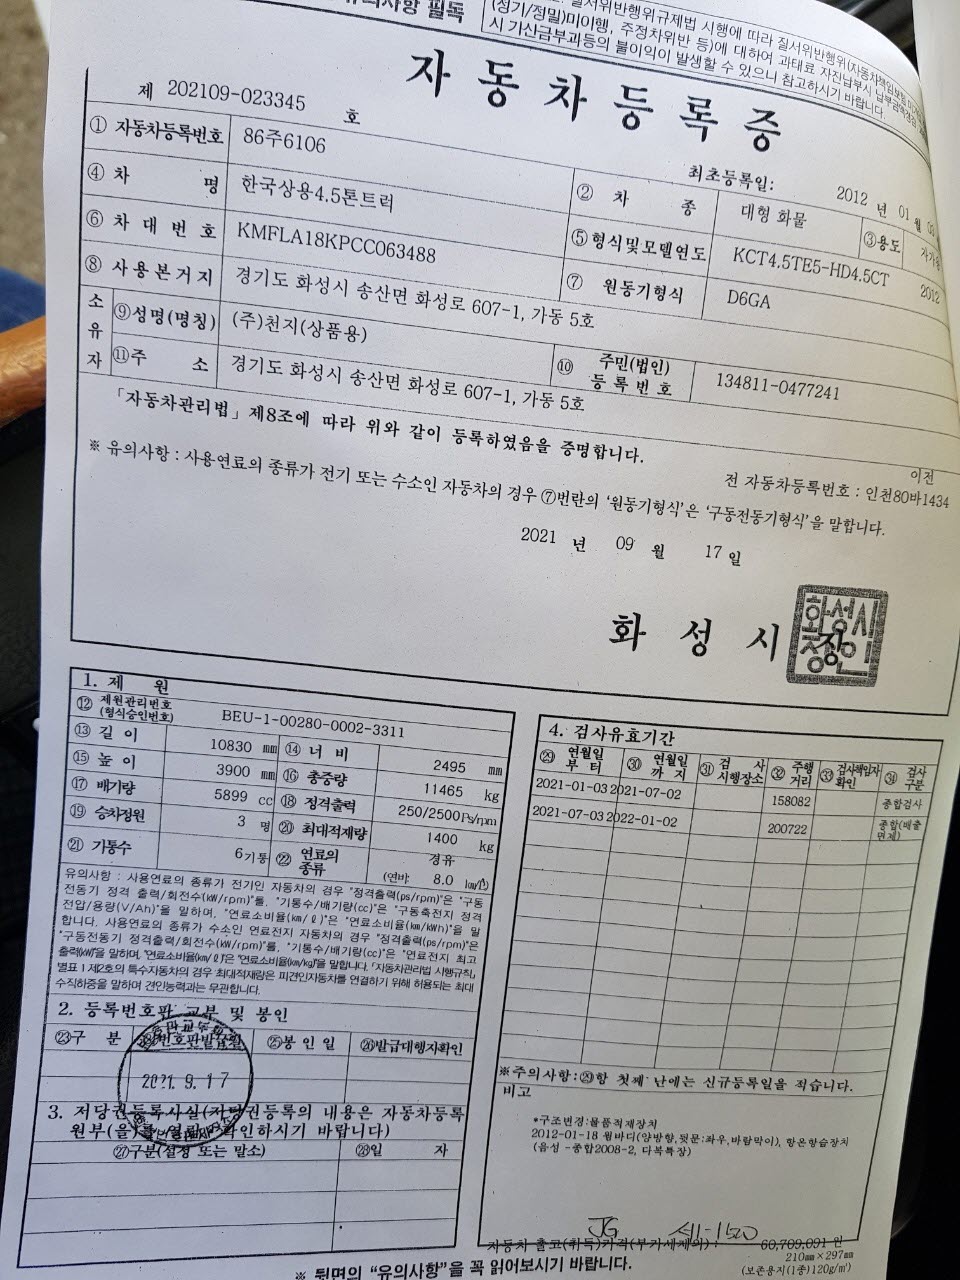 유의사항 필독
질서위반행위규제법 시행에 따라 질서위반행위(자동차책임보험
(정기/정밀)미이행, 주정차위반 등)에 대하여 과태료 자진납부시
시 가산금부과등의 불이익이 발생할 수 있으니 참고하시기 바랍니다.
자동차등록증
제 202109-023345 호
최초등록일: 2012 년 01 월
① 자동차등록번호 86주6106
② 차 종 대형 화물
③용도
④ 차 명 한국상용4.5톤트럭
⑤ 형식및모델연도 KCT4.5TE5-HD4.5CT 2012
⑥ 차 대 번 호 KMFLA18KPCC063488
⑦ 원동기형식 D6GA
⑧ 사용본거지 경기도 화성시 송산면 화성로 607-1, 가동 5호
소유자
⑨성명(명칭) (주)천지(상품용)
⑩ 주민(법인)등록번호 134811-0477241
⑪주 소 경기도 화성시 송산면 화성로 607-1, 가동 5호
「자동차관리법」제8조에 따라 위와 같이 등록하였음을 증명합니다.
이전
전 자동차등록번호 : 인천80바1434
※ 유의사항 : 사용연료의 종류가 전기 또는 수소인 자동차의 경우 ⑦번란의 '원동기형식'은 '구동전동기형식'을 말합니다.
2021 년 09 월 17 일
화 성 시 장
화성시
장인
1. 제 원
⑫ 제원관리번호 (형식승인번호) BEU-1-00280-0002-3311
⑬ 길 이 10830 mm ⑭ 너 비 2495 mm
⑮ 높 이 3900 mm ⑯ 총중량 11465 kg
⑰ 배기량 5899 cc ⑱ 정격출력 250/2500Ps/rpm
⑲ 승차정원 3 명 ⑳ 최대적재량 1400 kg
㉑ 기통수 6기통 ㉒ 연료의 종류 경유
(연비: 8.0 km/ℓ)
유의사항 : 사용연료의 종류가 전기인 자동차의 경우 "정격출력(ps/rpm)"은 "구동
전동기 정격 출력/회전수(kW/rpm)"를, "기통수/배기량(cc)"은 "구동축전지 정격
전압/용량(V/Ah)"을 말하며, "연료소비율(km/ℓ)"은 "연료소비율(km/kWh)"을 말
합니다. 사용연료의 종류가 수소인 연료전지 자동차의 경우 "정격출력(ps/rpm)"은
"구동전동기 정격출력/회전수(kW/rpm)"를, "기통수/배기량(cc)"은 "연료전지 최고
출력(kW)"을 말하며, "연료소비율(km/ℓ)"은 "연료소비율(km/kg)"을 말합니다. 「자동차관리법 시행규칙」
별표 1 제2호의 특수자동차의 경우 최대적재량은 피견인자동차를 연결하기 위해 허용되는 최대
수직하중을 말하며 견인능력과는 무관합니다.
2. 등록번호판 교부 및 봉인
㉓구 분 ㉔번호판발급일 ㉕봉 인 일 ㉖발급대행자확인
2021. 9. 17
3. 저당권등록사실(저당권등록의 내용은 자동차등록
원부(을)를 열람·확인하시기 바랍니다)
㉗구분(설정 또는 말소) ㉘일 자
4. 검사유효기간
㉙ 연월일부터 ㉚ 연월일까지 ㉛ 검사시행장소 ㉜ 주행거리 ㉝ 검사책임자확인 ㉞ 검사구분
2021-01-03 2021-07-02 158082 종합검사
2021-07-03 2022-01-02 200722 종합(배출면제)
※주의사항:㉙항 첫째 난에는 신규등록일을 적습니다.
비고
*구조변경:물품적재장치
2012-01-18 윙바디(양방향,뒷문:좌우,바람막이), 항온항습장치
(음성 -종합2008-2, 다복특장)
자동차 출고(취득)가격(부가세제외) : 60,709,091 원
210㎜×297㎜
(보존용지(1종)120g/㎡)
※ 뒷면의 "유의사항"을 꼭 읽어보시기 바랍니다.